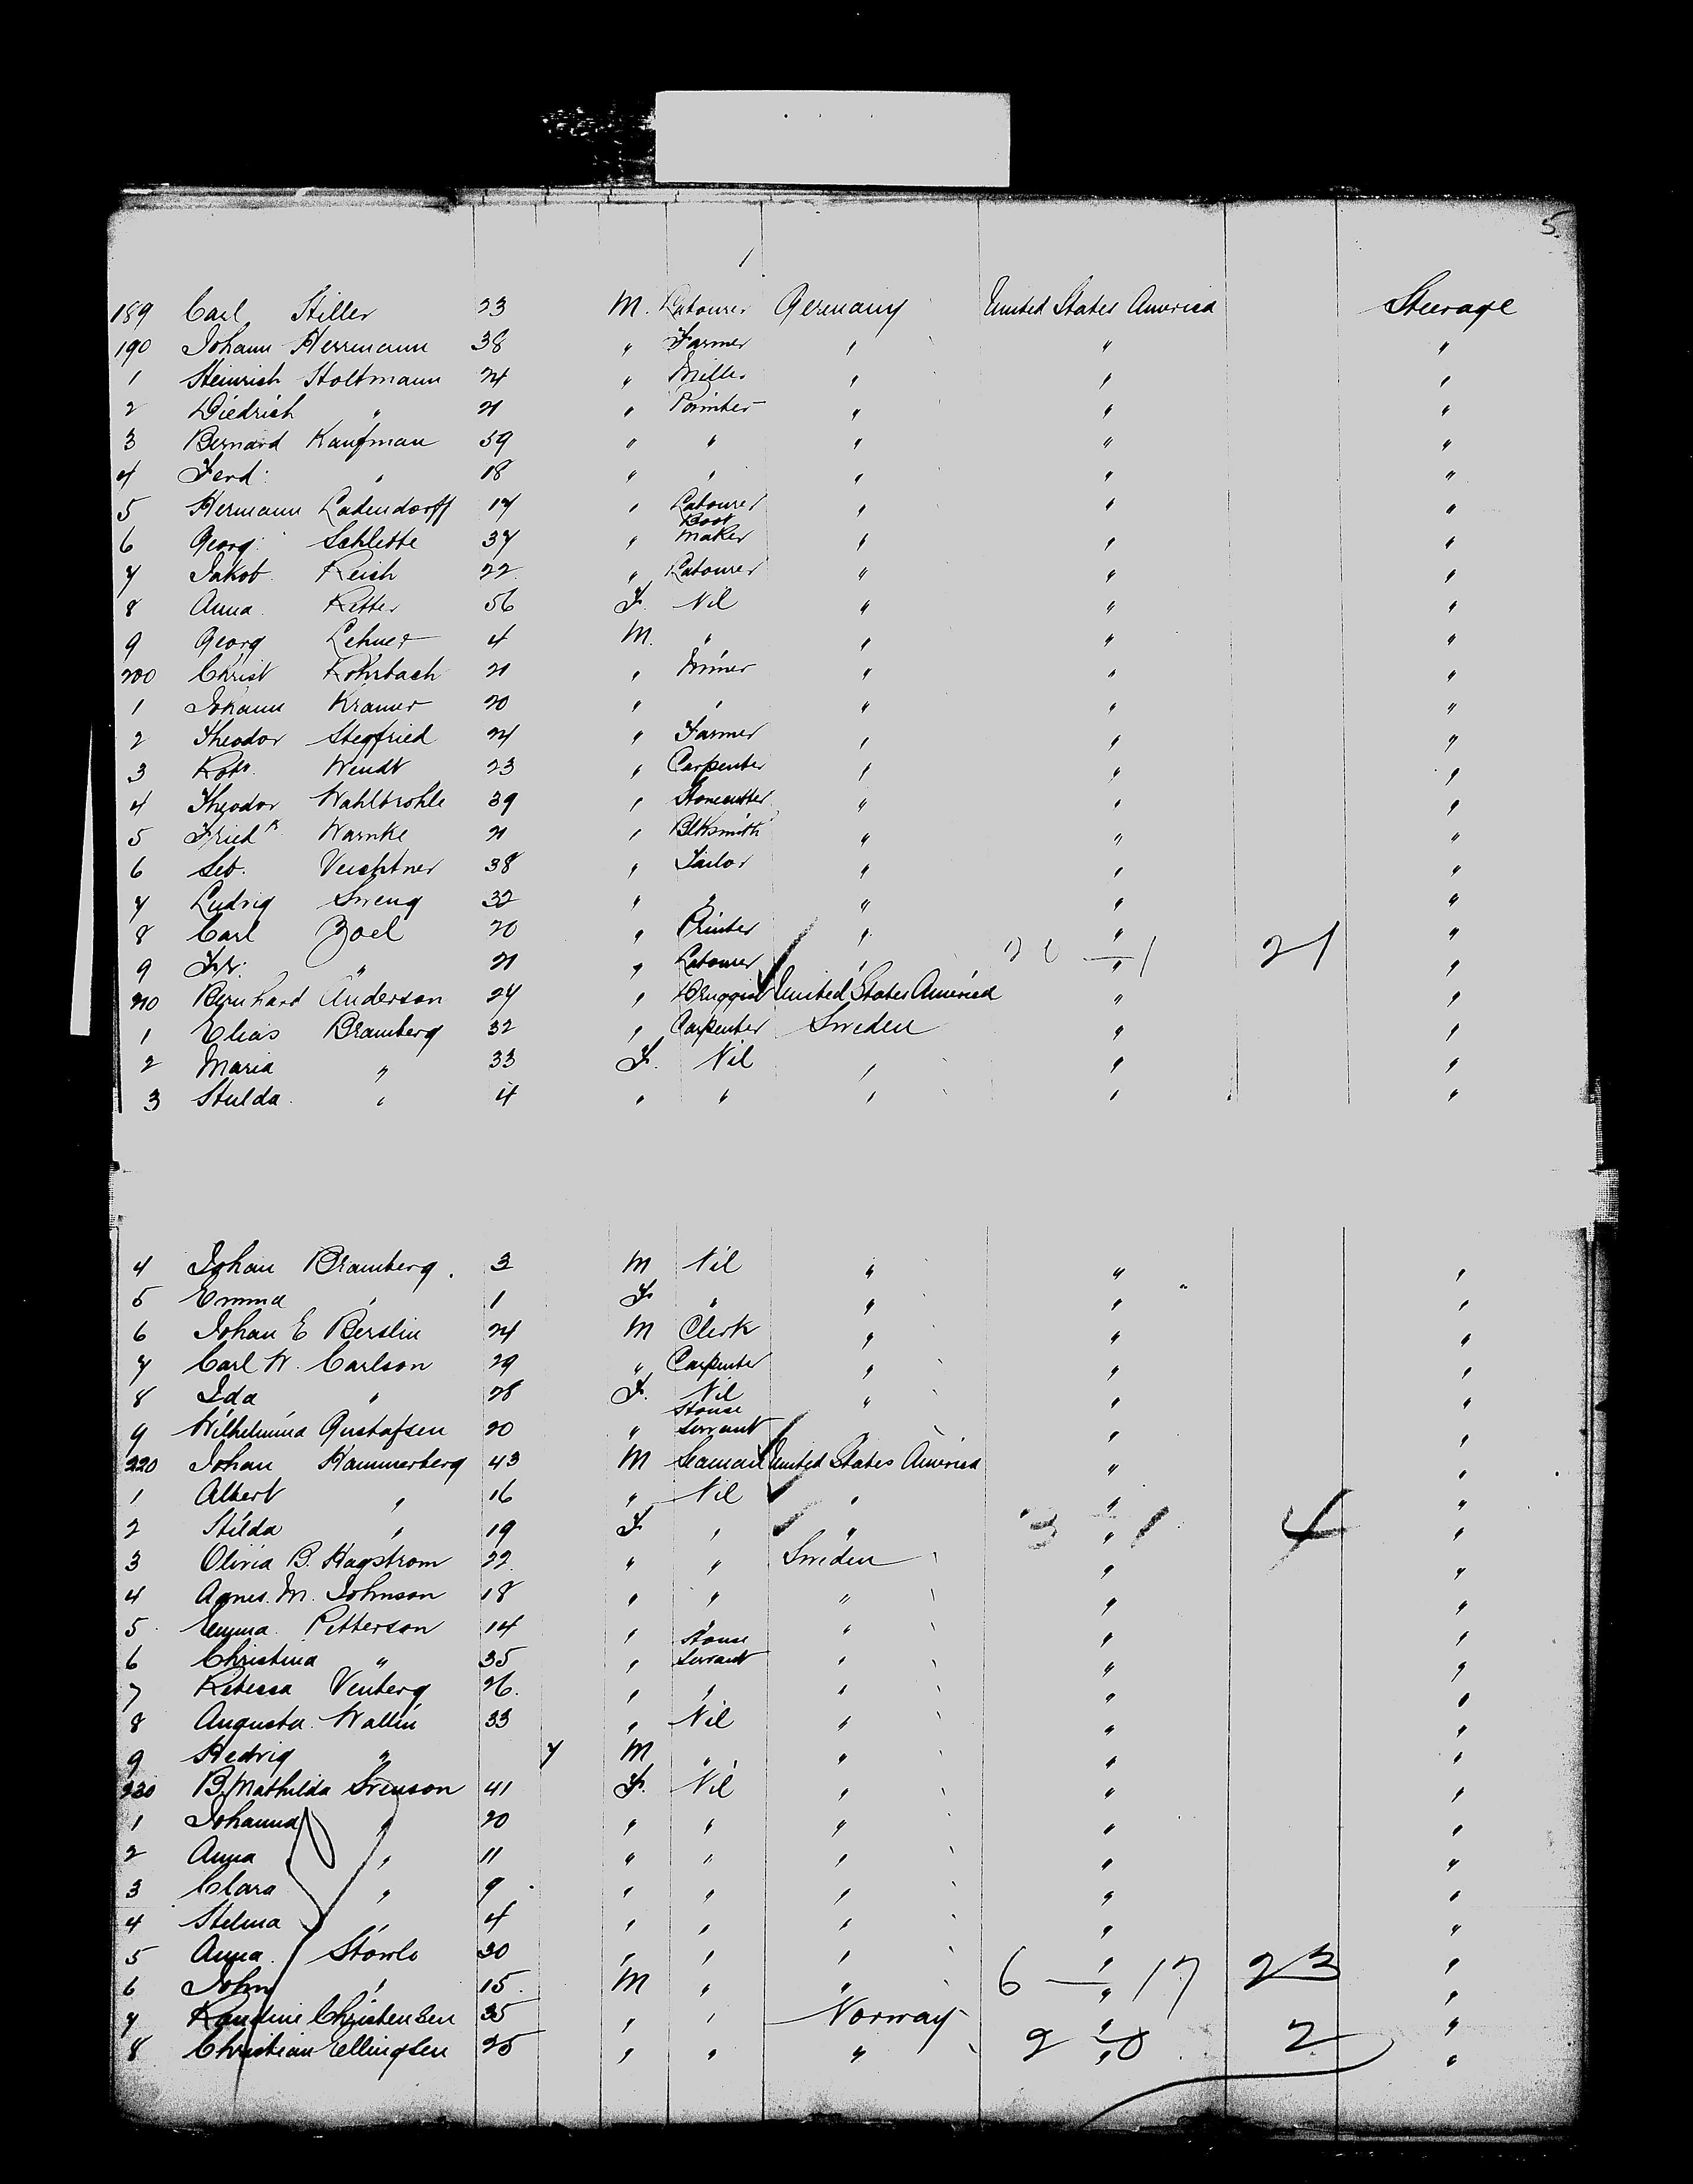 5
189 Carl Stiller 23 M. Labourer Germany United States America Steerage
190 Johann Herrmann 38 " Farmer " " "
1 Heinrich Holtmann 24 " Miller " " "
2 Diedrich " 21 " Painter " " "
3 Bernard Kaufman 59 " " " " "
4 Ferd: " 18 " " " " "
5 Hermann Ladendorff 17 " Labourer " " "
6 Georg: Schlette 37 " Boot Maker " " "
7 Jakob Reich 22 " Labourer " " "
8 Anna Ritter 56 F. Nil " " "
9 Georg Lehner 4 M. " " " "
200 Christ Rohrbach 21 " Miner " " "
1 Johann Kramer 20 " " " " "
2 Theodor Stegfried 24 " Farmer " " "
3 Robt. Wendt 23 " Carpenter " " "
4 Theodor Wahlbrohle 39 " Stonecutter " " "
5 Friedk Warnke 21 " Blksmith " " "
6 Seb. Veichtner 38 " Tailor " " "
7 Ludvig Sweng 32 " " " " "
8 Carl Zoel 20 " Printer " " "
9 Fr. " 21 " Labourer " 20 — 1 " 21 "
210 Bernhard Anderson 24 " Druggist United States America " "
1 Elias Bramberg 32 " Carpenter Sweden " "
2 Maria " 33 F. Nil " " "
3 Hulda " 4 " " " " "
4 Johan Bramberg. 3 M Nil " " "
5 Emma " 1 F " " " "
6 Johan E Berslin 24 M Clerk " " "
7 Carl W. Carlson 29 " Carpenter " " "
8 Ida " 28 F. Nil " " "
9 Wilhelmina Gustafsen 20 " House Servant " " "
220 Johan Hammerberg 43 M Seaman United States America " "
1 Albert " 16 " Nil " " "
2 Hilda " 19 F " " 3 — 1 " 4 "
3 Olivia B. Hagstrom 22 " " Sweden " "
4 Agnes. M. Johnson 18 " " " " "
5 Emma Petterson 14 " " " " "
6 Christina " 35 " House Servant " " "
7 Rebecca Venberg 26. " " " " "
8 Augusta Wallin 33 " Nil " " "
9 Hedvig " 7 M " " " "
230 B. Mathilda Svenson 41 F. Nil " " "
1 Johanna " 20 " " " " "
2 Anna " 11 " " " " "
3 Clara " 9 " " " " "
4 Helma " 4 " " " " "
5 Anna Stowle 30 " " " " "
6 John " 15 M " " 6 — 17 " 23 "
7 Christensen 35 " " Norway " "
8 Christian Ellingsen 25 " " " 2 — 0 " 2 "